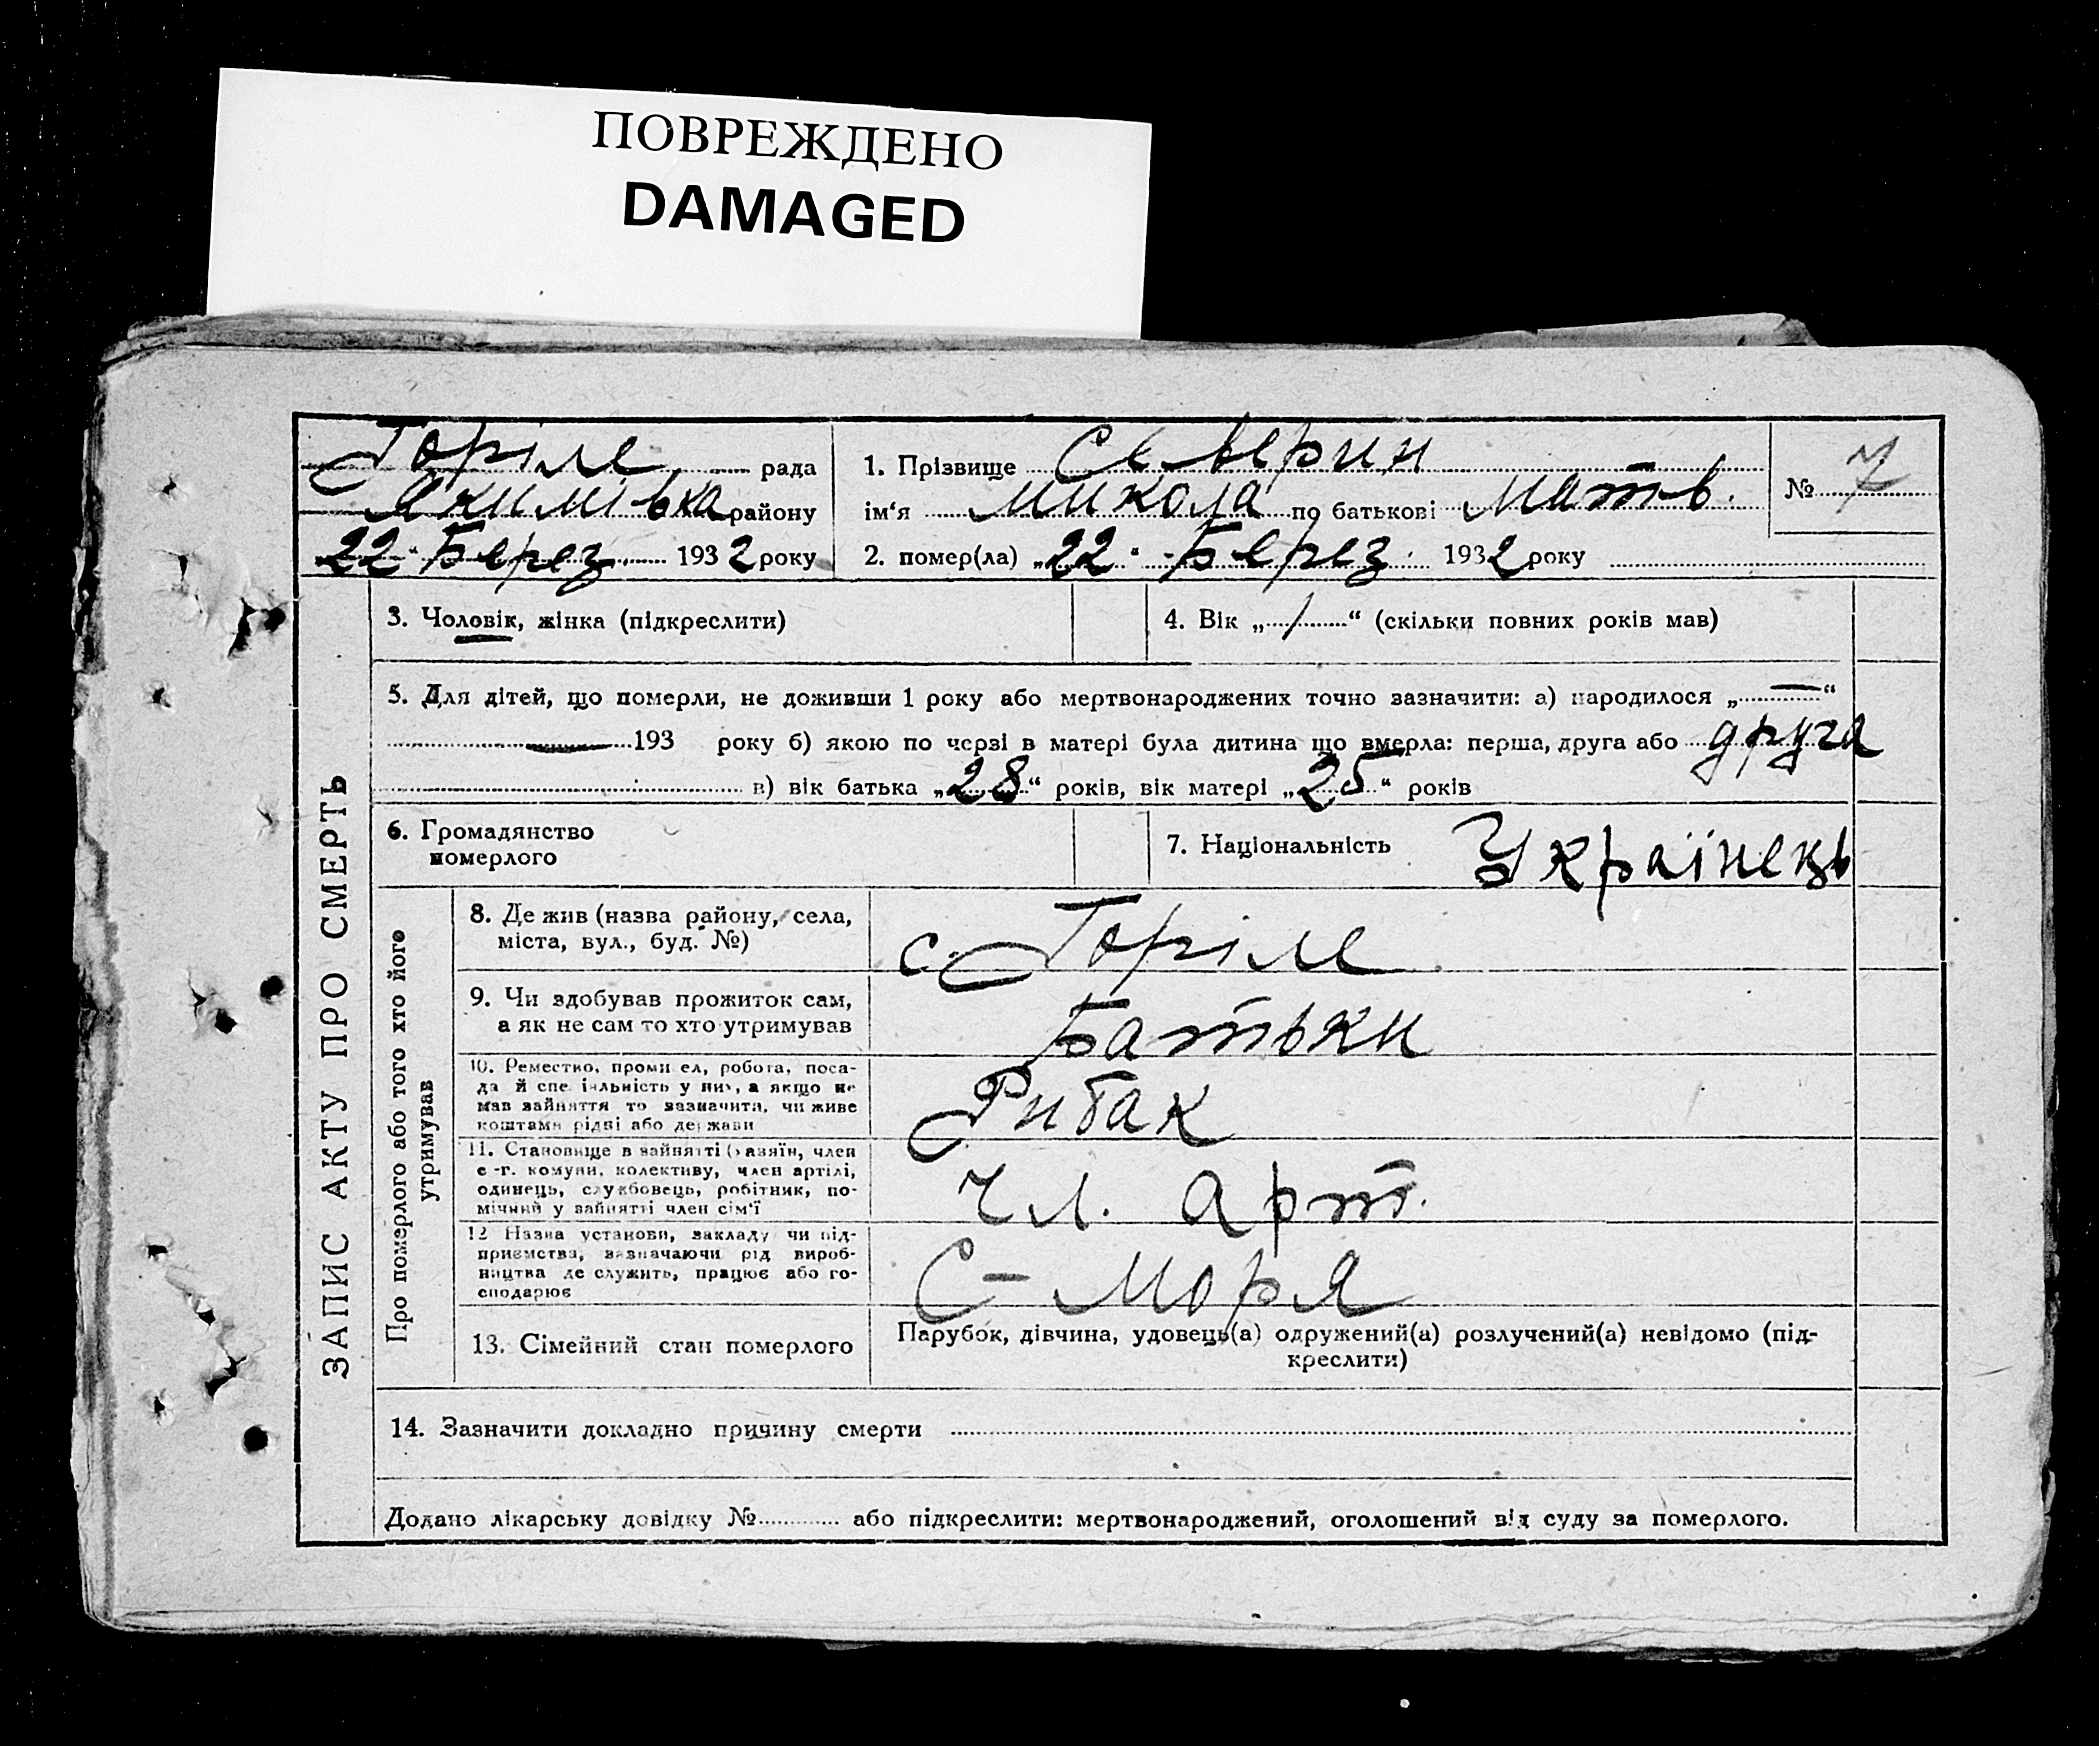 ПОВРЕЖДЕНО
DAMAGED
Горіле рада
Якимівка району
22 " Берез. 1932 року
1. Прізвище Северин
ім'я Микола по батькові Матв.
2. помер(ла) „22" Берез. 1932 року
№ 7
ЗАПИС АКТУ ПРО СМЕРТЬ
3. Чоловік, жінка (підкреслити)
4. Вік „1" (скільки повних років мав)
5. Для дітей, що померли, не доживши 1 року або мертвонароджених точно зазначити: а) народилося „—"
— 193 року б) якою по черзі в матері була дитина що вмерла: перша, друга або друга
в) вік батька „28" років, вік матері „25" років
6. Громадянство
померлого
7. Національність Українець
Про померлого або того хто його
утримував
8. Де жив (назва району, села,
міста, вул., буд. №)
с. Горіле
9. Чи здобував прожиток сам,
а як не сам то хто утримував
Батьки
10. Ремество, промисел, робота, поса-
да й спеціяльність у них, а якщо не
мав зайняття то зазначити, чи живе
коштами рідні або держави
Рибак
11. Становище в зайнятті (хазяїн, член
с.-г. комуни, колективу, член артілі,
одинець, службовець, робітник, по-
мічний у зайнятті член сім'ї
Чл. арт.
12 Назва установи, закладу чи під-
приємства, зазначаючи рід вироб-
ництва де служить, працює або го-
сподарює
С – Моря
13. Сімейний стан померлого
Парубок, дівчина, удовець(а) одружений(а) розлучений(а) невідомо (під-
креслити)
14. Зазначити докладно причину смерти
Додано лікарську довідку № або підкреслити: мертвонароджений, оголошений від суду за померлого.